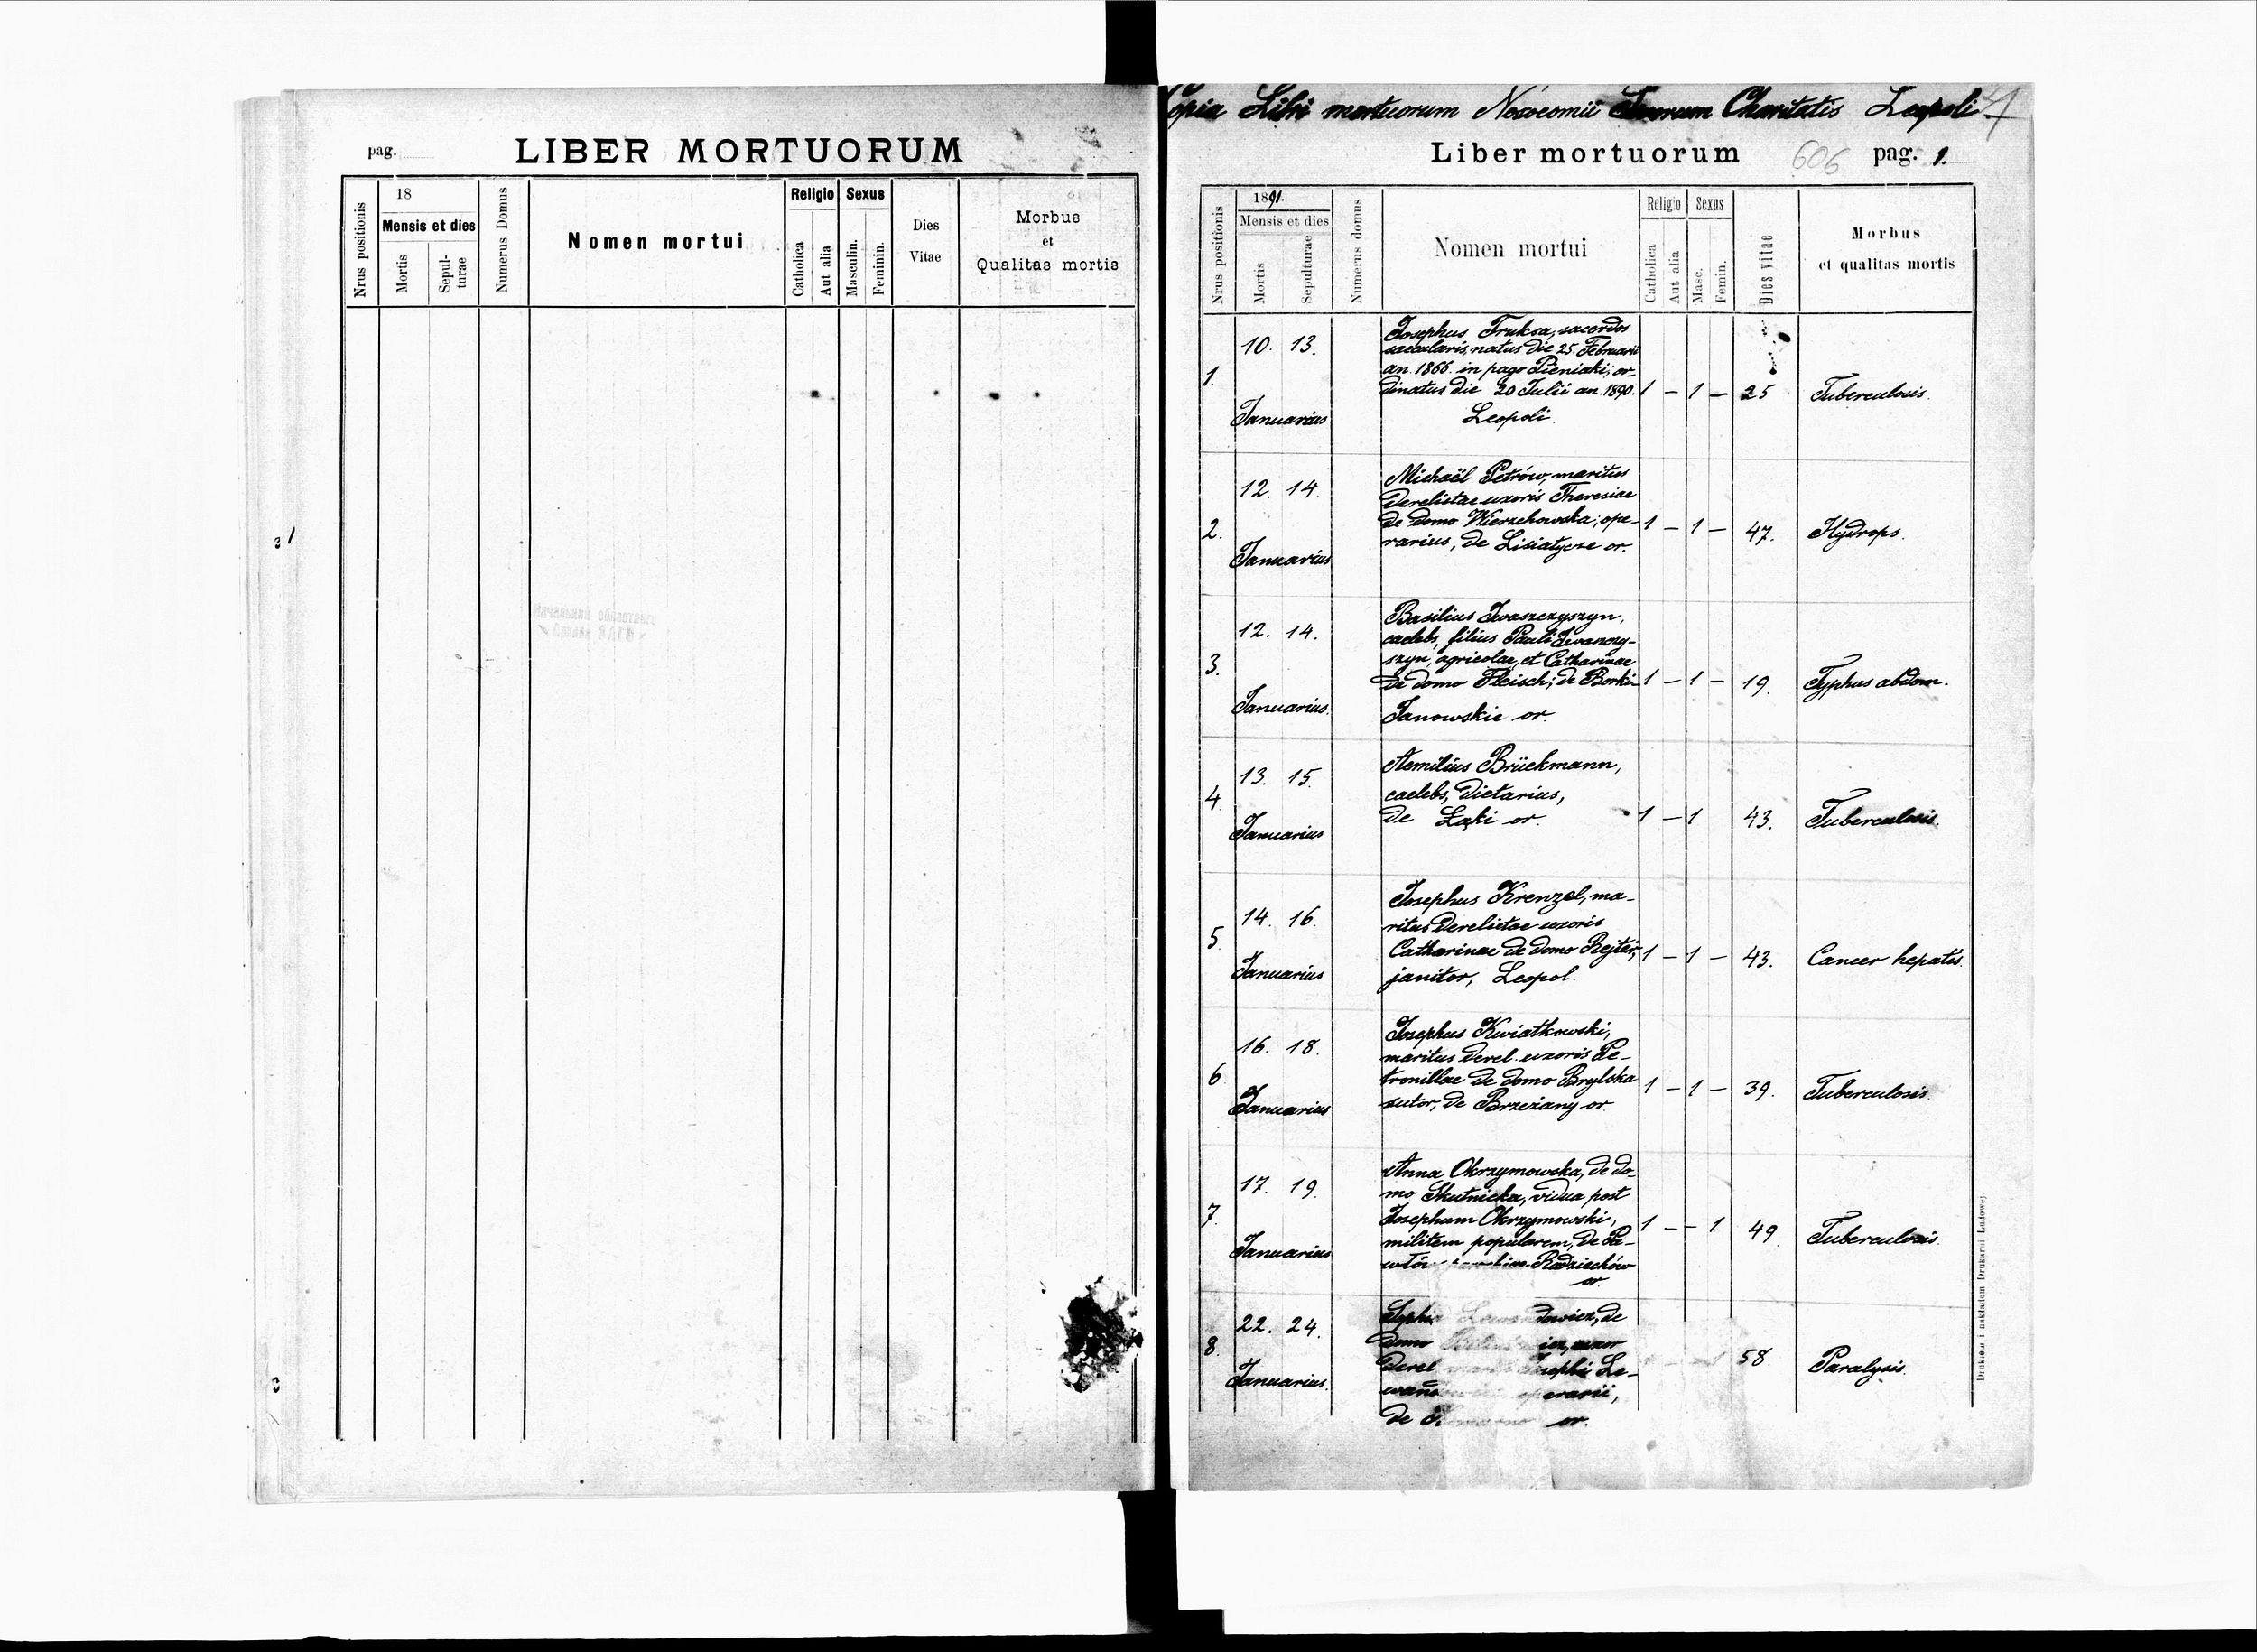 pag.
LIBER MORTUORUM
Nrus positionis
18
Mensis et dies
Mortis
Sepul-
turae
Numerus Domus
Nomen mortui
Religio
Catholica
Aut alia
Sexus
Masculin.
Feminin.
Dies
Vitae
Morbus
et
Qualitas mortis
Copia Libri mortuorum Nosocomii Charitatis Leopoli
Liber mortuorum
606
pag. 1.
Nrus positionis
1891.
Mensis et dies
Mortis
Sepulturae
Numerus domus
Nomen mortui
Religio
Catholica
Aut alia
Sexus
Masc.
Femin.
Dies vitae
Morbus
et qualitas mortis
1.
10. 13.
Januarius
Josephus Truksa, sacerdos
saecularis, natus die 25. Februarii
an. 1866. in pago Pieniaki; or-
dinatus die 20 Julii an. 1890.
Leopoli.
1 – 1 – 25 Tuberculosis.
2.
12. 14.
Januarius
Michaël Petrów, maritus
derelictae uxoris Theresiae
de domo Wierzchowska; ope-
rarius, de Lisiatycze or.
1 – 1 – 47. Hydrops.
3.
12. 14.
Januarius.
Basilius Iwaszczyszyn,
caelebs, filius Pauli Iwaszczy-
szyn, agricolae, et Catharinae
de domo Fleisch; de Borki-
Janowskie or.
1 – 1 – 19. Typhus abdom.
4.
13. 15.
Januarius
Aemilius Brückmann,
caelebs, dietarius,
de Łąki or.
1 – 1 43. Tuberculosis.
5.
14. 16.
Januarius
Josephus Krenzel, ma-
ritus derelictae uxoris
Catharinae de domo Rejter,
janitor, Leopol.
1 – 1 – 43. Cancer hepatis.
6
16. 18.
Januarius
Josephus Kwiatkowski,
maritus derel. uxoris Pe-
tronillae de domo Brylska
sutor, de Brzeżany or.
1 – 1 – 39. Tuberculosis.
7.
17. 19.
Januarius
Anna Okrzymowska, de do-
mo Skutnicka, vidua post
Josephum Okrzymowski,
militem popularem, de Pa-
włów Radziechów
or.
1 – – 1 49. Tuberculosis.
8.
22. 24.
Januarius.
Sophia de
domo uxor
derel. Josephi Le-
operarii,
de or.
58. Paralysis.
Drukiem i nakładem Drukarni Ludowej.